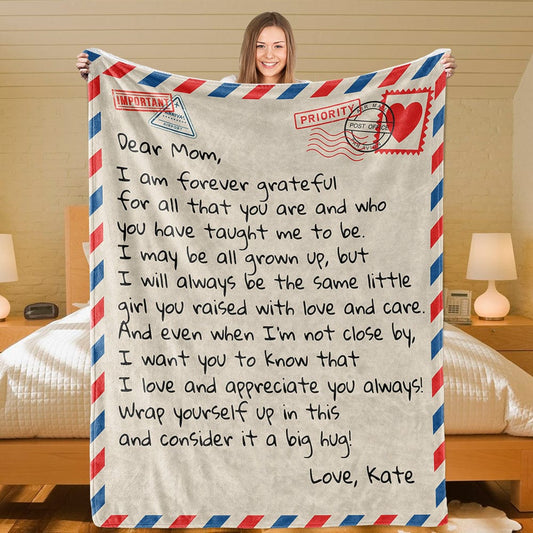 IMPORTANT
PRIORITY
POST OFFICE
Dear Mom,
I am forever grateful
for all that you are and who
you have taught me to be.
I may be all grown up, but
I will always be the same little
girl you raised with love and care.
And even when I'm not close by,
I want you to know that
I love and appreciate you always!
Wrap yourself up in this
and consider it a big hug!
Love, Kate